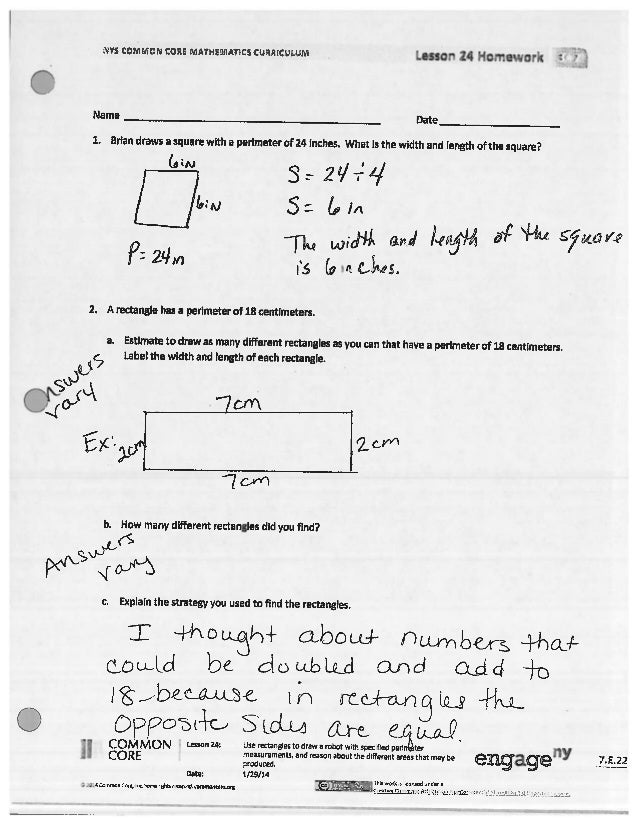 NYS COMMON CORE MATHEMATICS CURRICULUM
Lesson 24 Homework
Name
Date
1. Brian draws a square with a perimeter of 24 inches. What is the width and length of the square?
6 in
6 in
P = 24 in
S = 24 ÷ 4
S = 6 in
The width and length of the square
is 6 inches.
2. A rectangle has a perimeter of 18 centimeters.
a. Estimate to draw as many different rectangles as you can that have a perimeter of 18 centimeters.
Label the width and length of each rectangle.
Answers
vary
7cm
Ex: 2cm
2cm
7cm
b. How many different rectangles did you find?
Answers
vary
c. Explain the strategy you used to find the rectangles.
I thought about numbers that
could be doubled and add to
18 because in rectangles the
opposite sides are equal.
COMMON
CORE
Lesson 24:
Use rectangles to draw a robot with specified perimeter
measurements, and reason about the different areas that may be
produced.
Date:
1/29/14
engage ny
7.E.22
This work is licensed under a